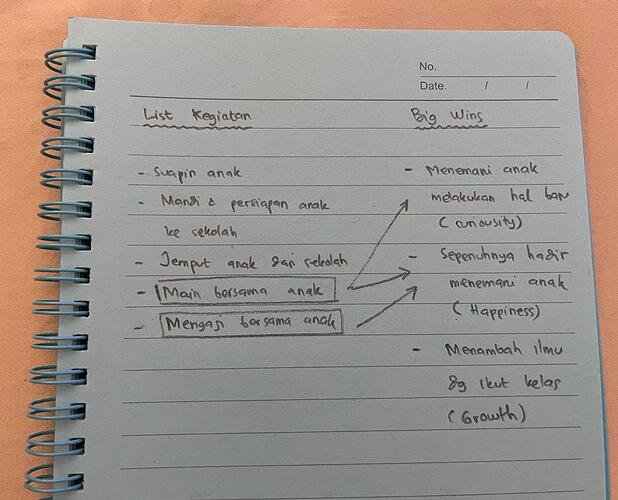 No.
Date. / /
List Kegiatan
- Suapin anak
- Mandi & persiapan anak
ke sekolah
- Jemput anak dari sekolah
- Main bersama anak
- Mengaji bersama anak
Big Wins
- Menemani anak
melakukan hal baru
(curiousity)
- Sepenuhnya hadir
menemani anak
(Happiness)
- Menambah ilmu
dg ikut kelas
(Growth)